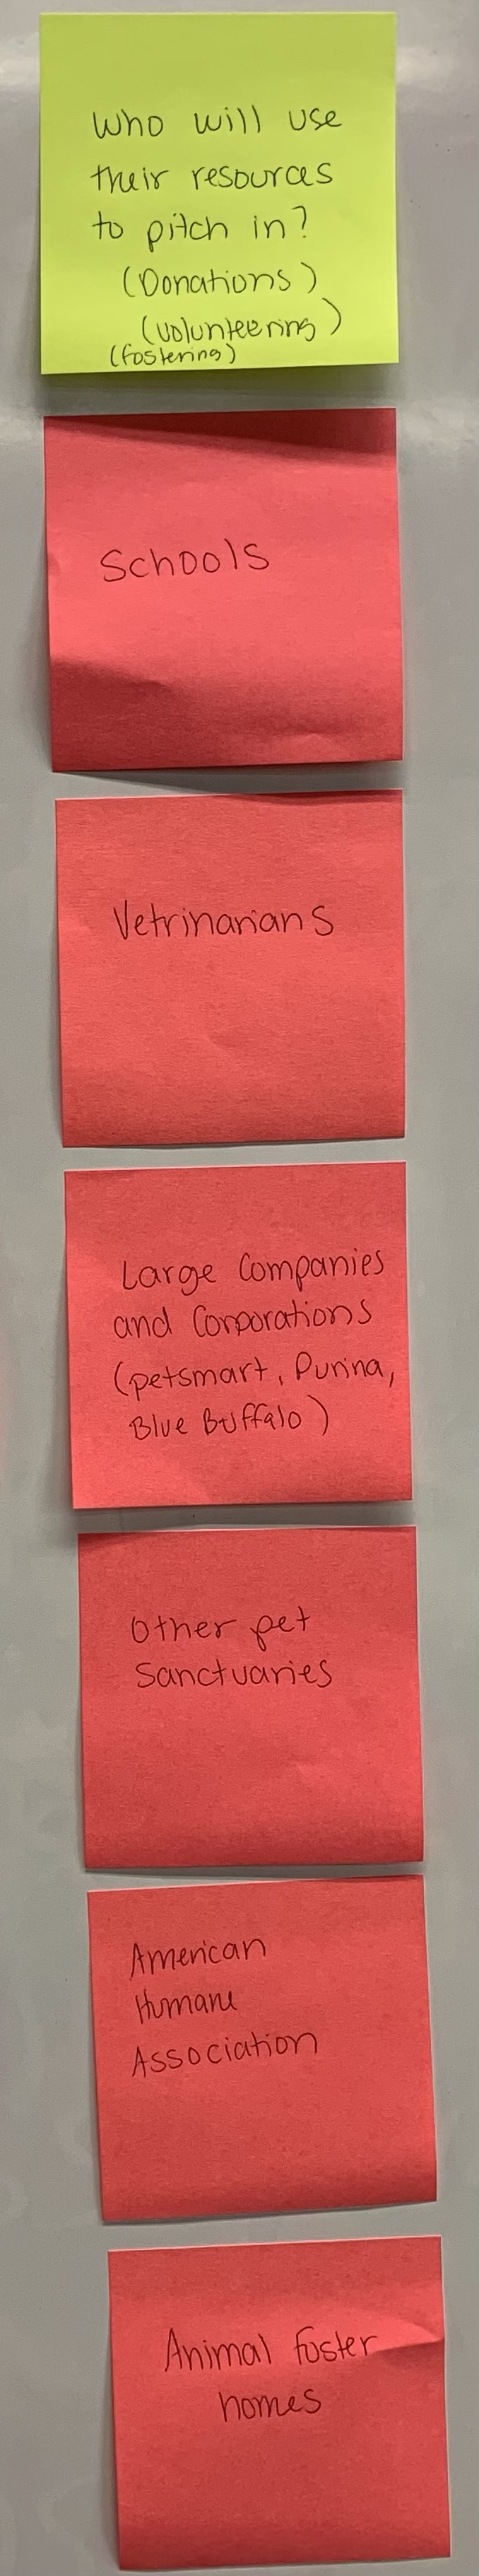 Who will use
their resources
to pitch in?
(Donations)
(volunteering)
(fostering)
Schools
Vetrinarians
Large Companies
and Corporations
(petsmart, Purina,
Blue Buffalo)
Other pet
Sanctuaries
American
Humane
Association
Animal foster
homes